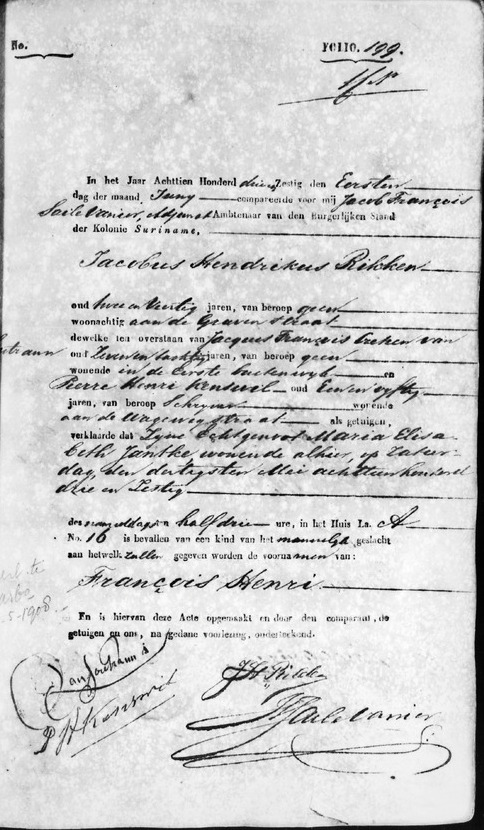 No.
FOLIO. 199.
In het Jaar Achttien Honderd drie en Zestig den Eersten
dag der maand Juny compareerde voor mij Jacob François
Saile Vanier, Adjunct Ambtenaar van den Burgerlijken Stand
der Kolonie Suriname,
Jacobus Hendrikus Rikken
oud twee en Veertig jaren, van beroep geen
woonachtig aan de Graven straat
dewelke ten overstaan van Jacques François van
oud Zeven en jaren, van beroep geen
wonende in de Eerste buitenwyk en
Pierre Henri Kenswil oud Een en vyftig
jaren, van beroep Schryver wonende
aan de Wagenweg straat als getuigen,
verklaarde dat Zyne Echtgenoot Maria Elisa
beth Jantke wonende alhier, op Zater-
dag, den dertigsten Mei achttienhonderd
drie en Zestig
des namiddags ten half drie ure, in het Huis La. A
No. 16 is bevallen van een kind van het mannelyk geslacht
aan hetwelk zullen gegeven worden de voornamen van:
François Henri
5-1908
En is hiervan deze Acte opgemaakt en door den comparant, de
getuigen en ons, na gedane voorlezing, onderteekend.
JH Rikken
P H Kenswil
JF Saile Vanier